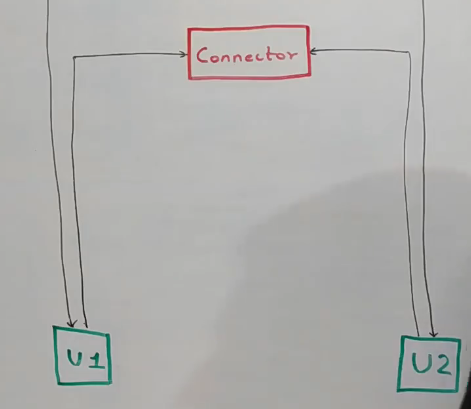 Connector
U1
U2